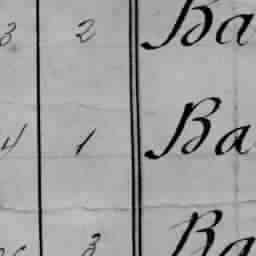 3 2 Ba
4 1 Ba
3 Ba